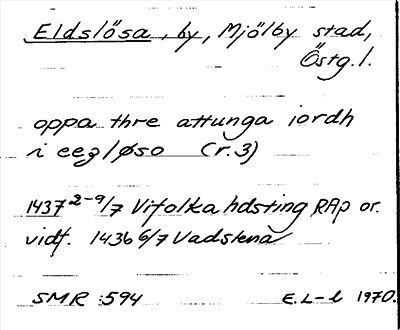 Eldslösa, by, Mjölby stad,
Östg.l.
oppa thre attunga iordh
i eezløso (r. 3)
1437 2-9/7 Vifolka hdsting RAp or.
vidf. 1436 6/7 Vadstena
SMR :594 E.L-l 1970.